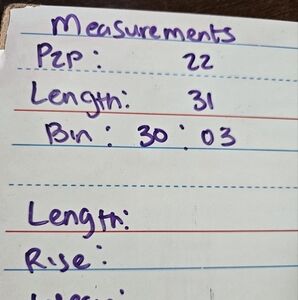 Measurements
P2P: 22
Length: 31
Bin: 30:03
Length:
Rise: